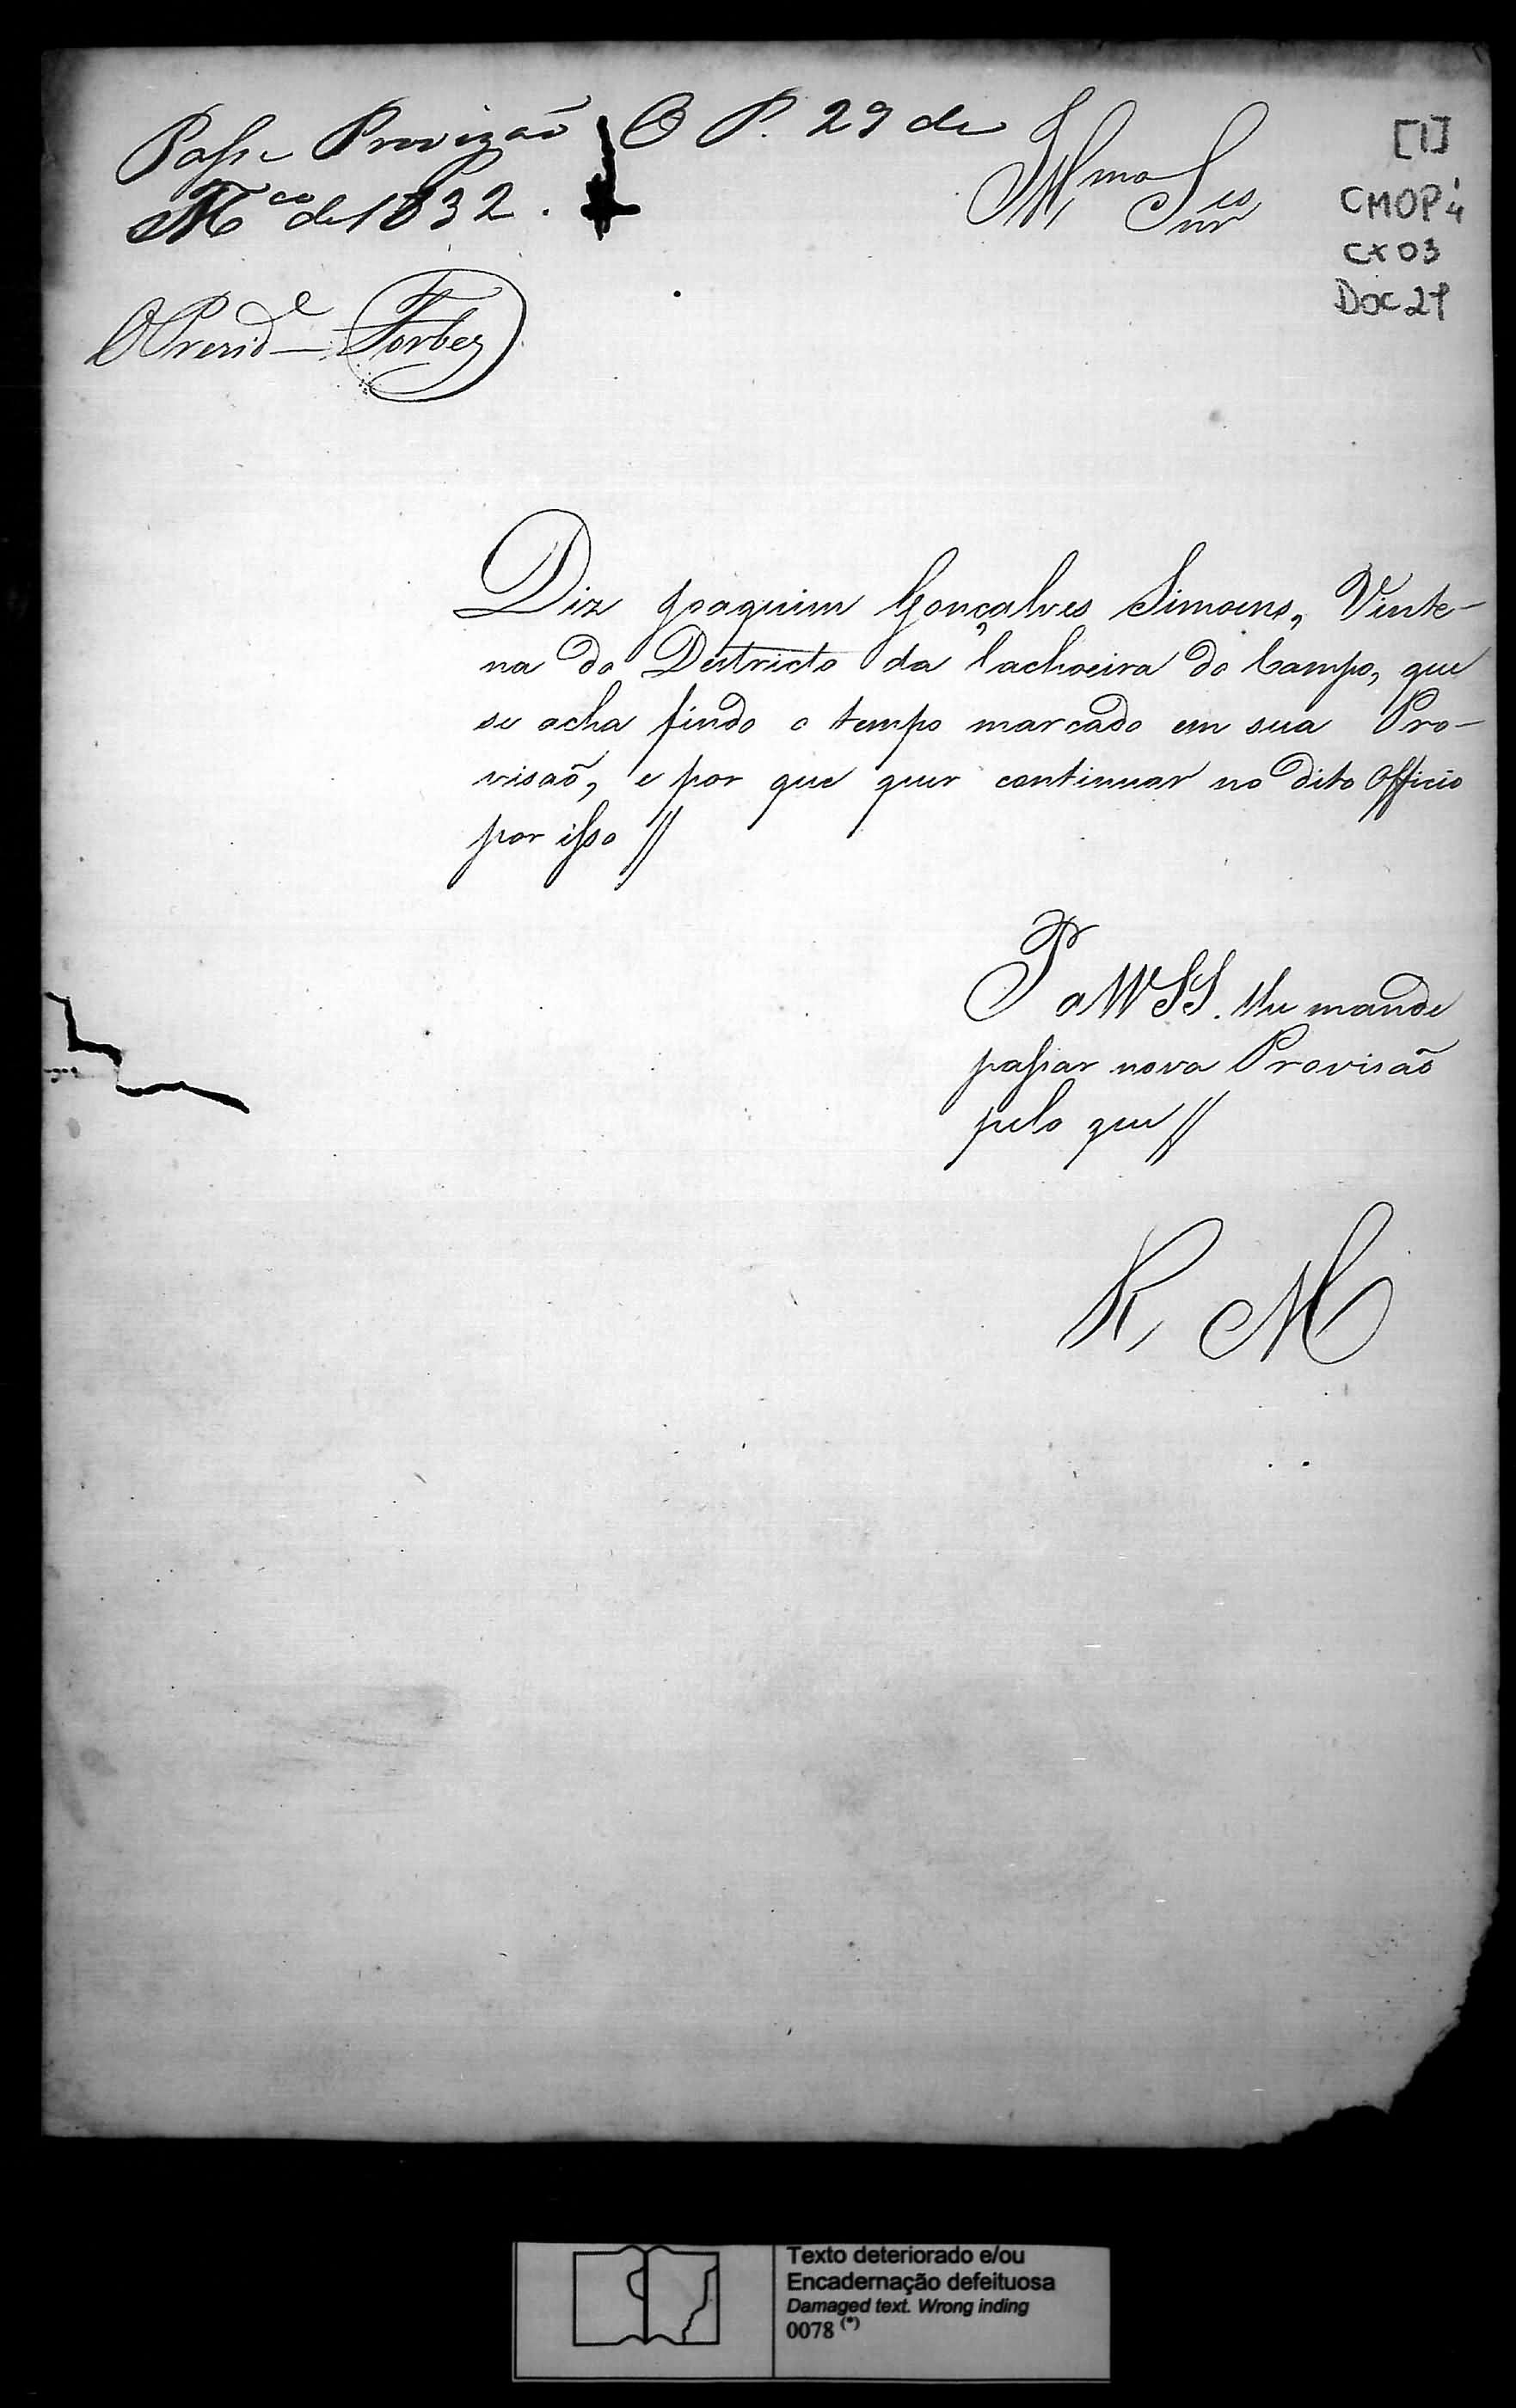 Passe Provizão O P. 29 de
M.ço de 1832.
O Prezid.e Forbes
Ill.mos Snr.es
[1]
CMOP
CX 03
Doc 21
Diz Joaquim Gonçalves Simoens, Vinte-
na do Destricto da Cachoeira do Campo, que
se acha findo o tempo marcado em sua Pro-
visaõ, e por que quer continuar no dito Officio
por isso //
P. a VV SS. lhe mande
passar nova Provisão
pelo que //
R M
Texto deteriorado e/ou
Encadernação defeituosa
Damaged text. Wrong inding
0078 (*)